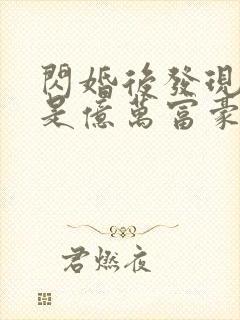 閃婚後發現
是億萬富豪
君燃夜